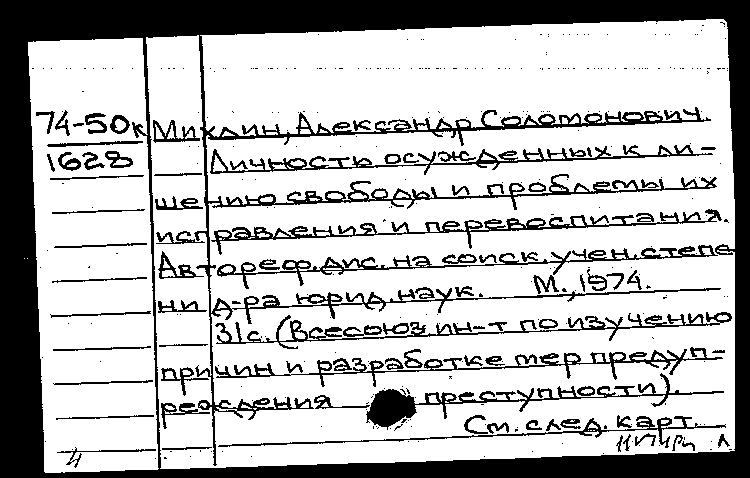 74-50к Михлин, Александр Соломонович.
1628 Личность осужденных к ли-
шению свободы и проблемы их
исправления и перевоспитания.
Автореф. дис. на соиск. учен. степе
ни д-ра юрид. наук. М., 1974.
31с. (Всесоюз ин-т по изучению
причин и разработке мер предуп-
реждения преступности).
См. след. карт.